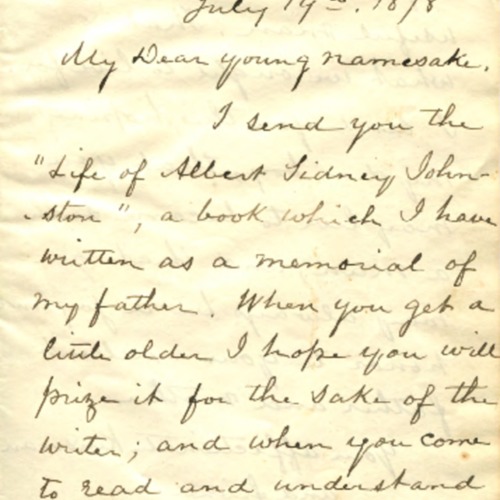 July 19th. 1878
My Dear young namesake.
I send you the
"Life of Albert Sidney John-
-ston", a book which I have
written as a memorial of
my father. When you get a
little older I hope you will
prize it for the sake of the
writer; and when you come
to read and understand